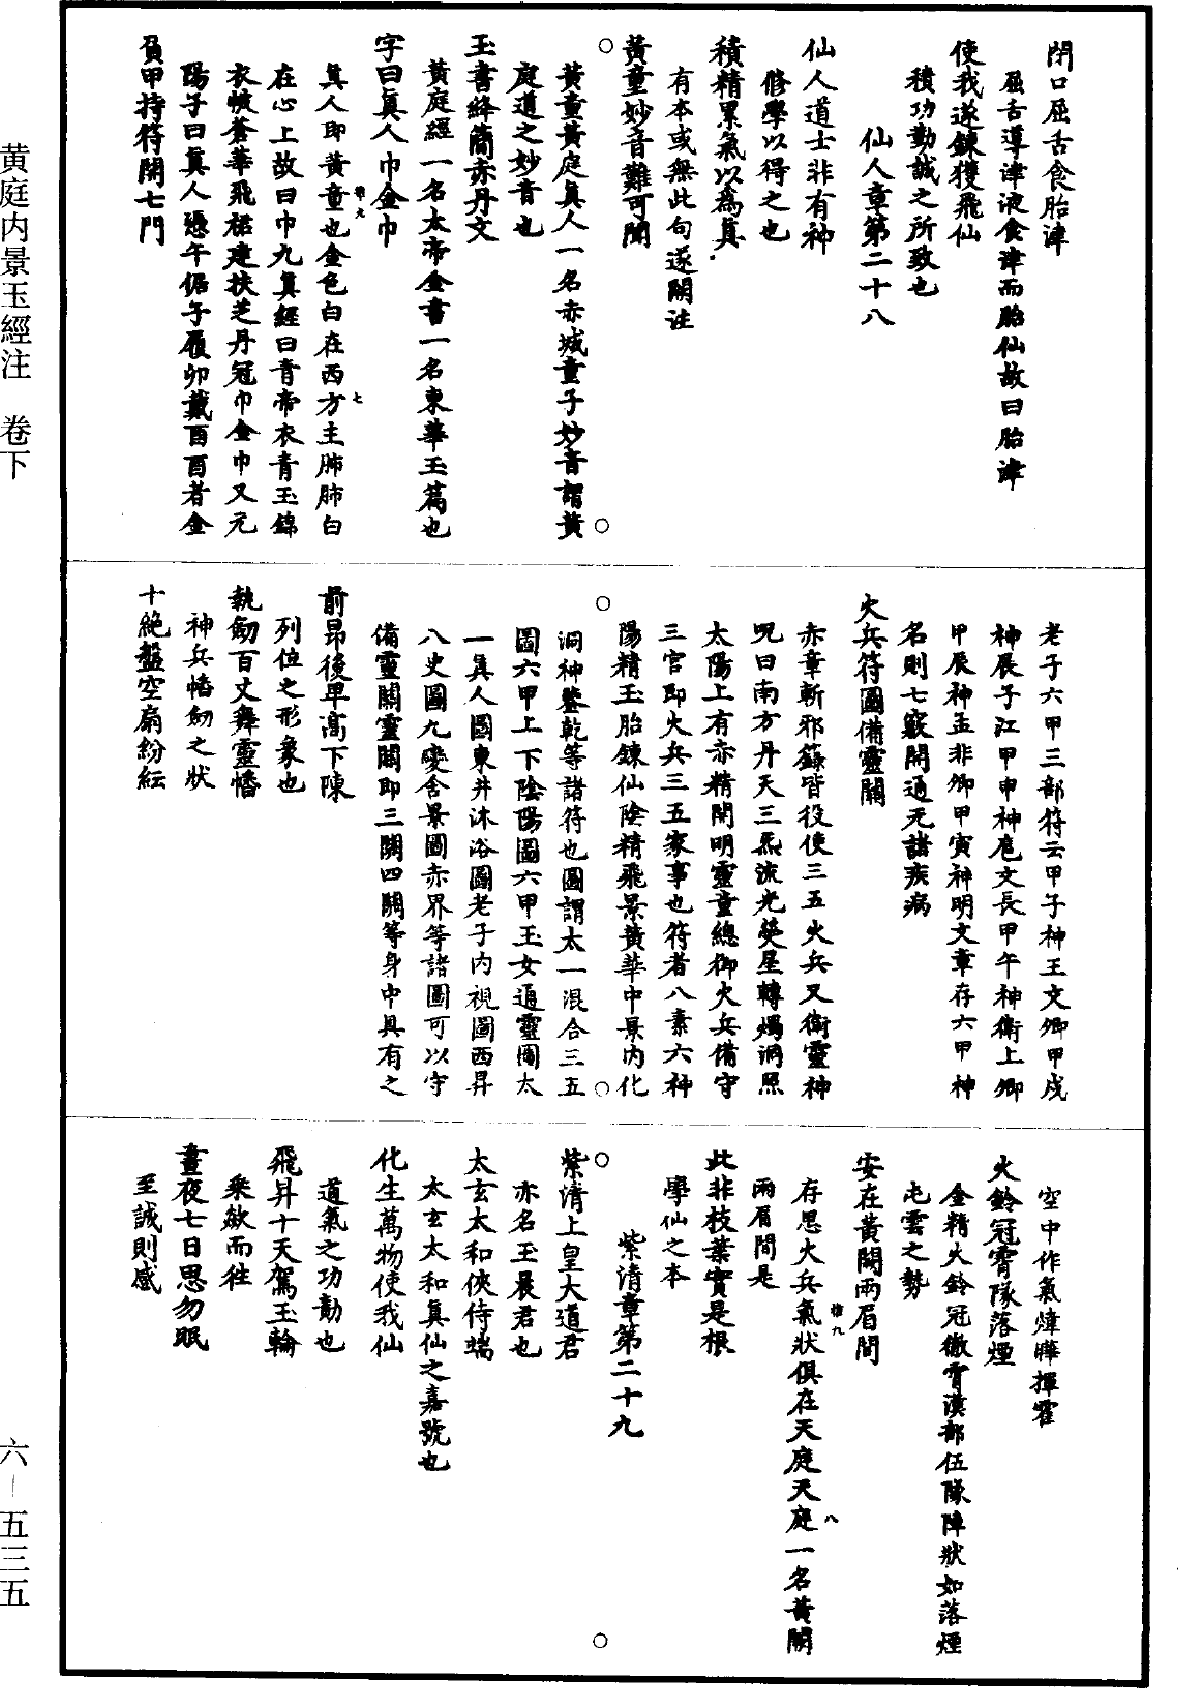 閉口屈舌食胎津
屈舌導津液食津而胎仙故曰胎津
使我遂鍊獲飛仙
積功勤誠之所致也
仙人章第二十八
仙人道士非有神
修學以得之也
積精累氣以為真
有本或無此句遂闕注
黃童妙音難可聞
黃童黃庭真人一名赤城童子妙音謂黃
庭道之妙音也
玉書絳簡赤丹文
黃庭經一名太帝金書一名東華玉篇也
字曰真人巾金巾
真人即黃童也金色白在西方主肺肺白
在心上故曰巾九真經曰青帝衣青玉錦
衣帔蒼華飛裙建扶芝丹冠巾金巾又元
陽子曰真人憑午倨子履卯戴酉酉者金
負甲持符開七門
七
老子六甲三部符云甲子神王文卿甲戌
神展子江甲申神扈文長甲午神衛上卿
甲辰神孟非卿甲寅神明文章存六甲神
名則七竅開通无諸疾病
火兵符圖備靈關
赤章斬邪籙皆役使三五火兵又衛靈神
呪曰南方丹天三炁流光熒星轉燭洞照
太陽上有赤精開明靈童總御火兵備守
三官即火兵三五家事也符者八素六神
陽精玉胎鍊仙陰精飛景黃華中景內化
洞神鑒乾等諸符也圖謂太一混合三五
圖六甲上下陰陽圖六甲玉女通靈圖太
一真人圖東井沐浴圖老子內視圖西昇
八史圖九變含景圖赤界等諸圖可以守
備靈關靈關即三關四關等身中具有之
前昂後卑高下陳
列位之形象也
執劒百丈舞靈幡
神兵幡劒之狀
十絕盤空扇紛紜
空中作氣煒曄揮霍
火鈴冠霄隊落煙
金精火鈴冠徹霄漢部伍隊陣狀如落煙
屯雲之勢
安在黃闕兩眉間
存思火兵氣狀俱在天庭天庭一名黃闕
兩眉間是
此非枝葉實是根
學仙之本
八
紫清章第二十九
紫清上皇大道君
亦名玉晨君也
太玄太和俠侍端
太玄太和真仙之嘉號也
化生萬物使我仙
道氣之功勳也
飛昇十天駕玉輪
乘欻而往
晝夜七日思勿眠
至誠則感
黃庭內景玉經注　卷下
六—五三五